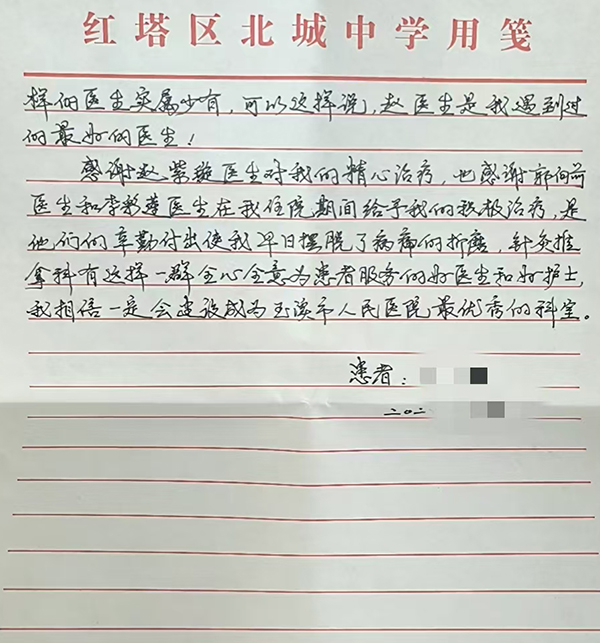 红塔区北城中学用笺
样的医生实属少有，可以这样说，赵医生是我遇到过
的最好的医生！
感谢赵紫璇医生对我的精心治疗，也感谢郭向前
医生和李彩莲医生在我住院期间给予我的积极治疗，是
他们的辛勤付出使我早日摆脱了病痛的折磨，针灸推
拿科有这样一群全心全意为患者服务的好医生和好护士，
我相信一定会建设成为玉溪市人民医院最优秀的科室。
患者：
二〇二